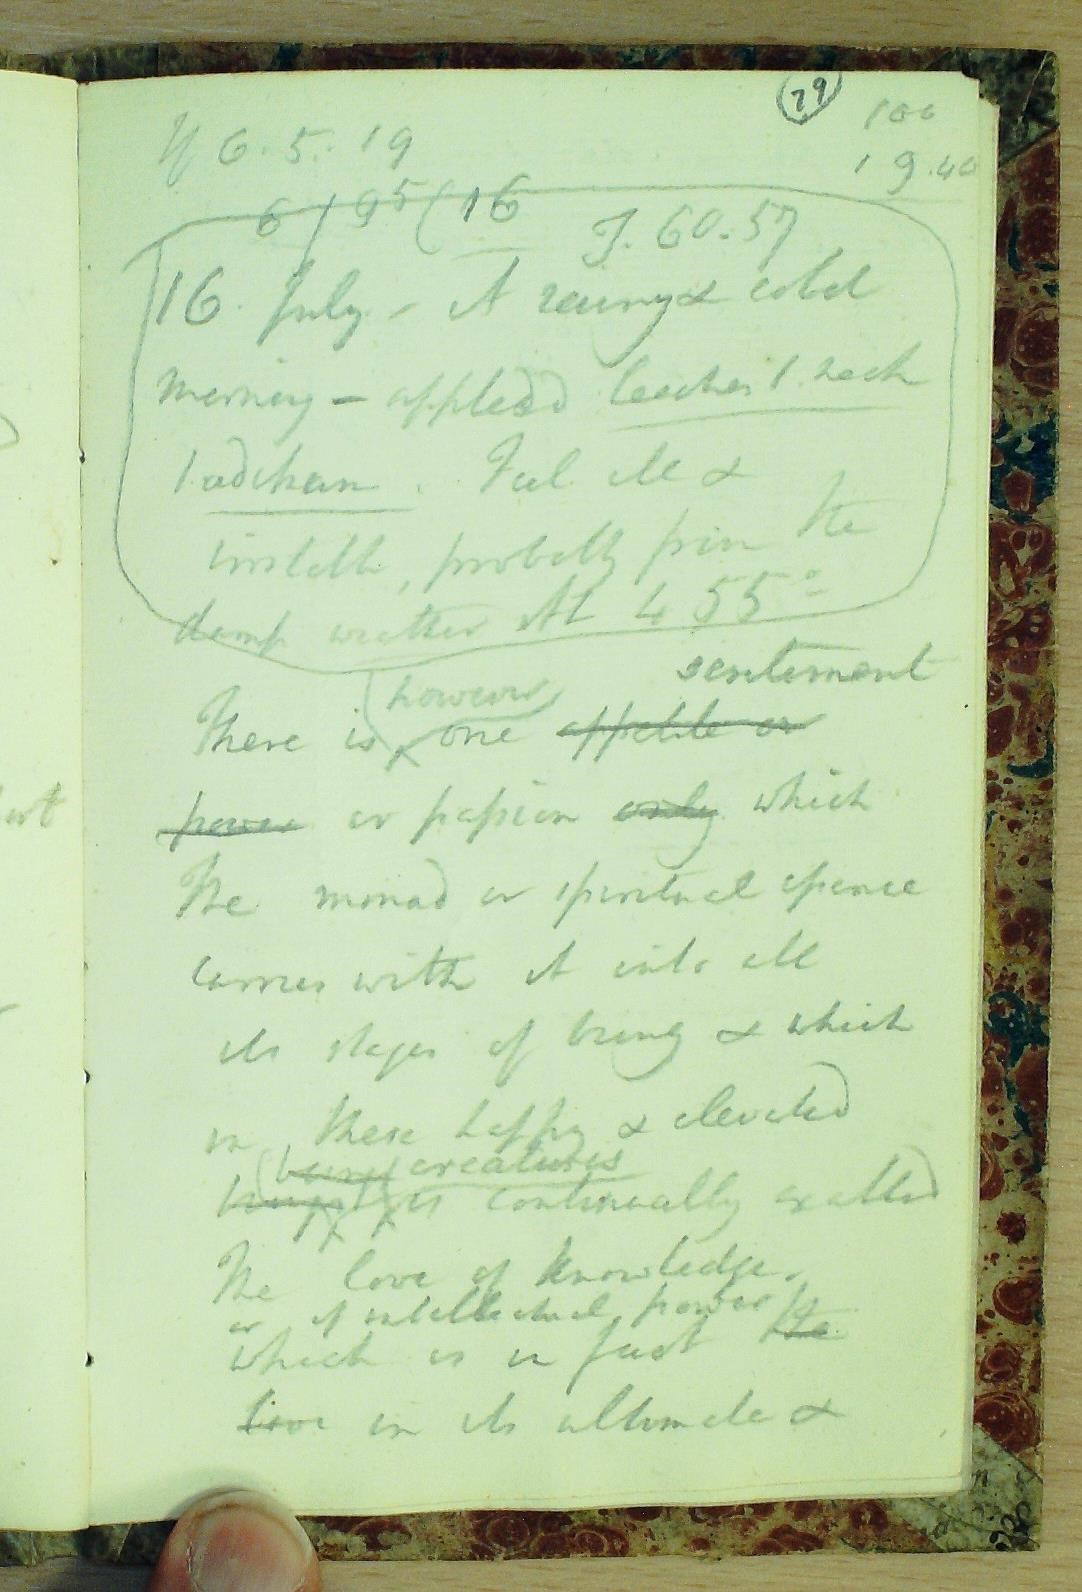 79
100
19.40
If 6.5.19
6)95(16
T. 60.57
16. July - A rainy & cold
morning - applied leeches 1. neck
Feel ill &
, probably from the
damp weather At 4 55°
sentiment
(however)
There is one appetite or
power or passion only which
the monad or spiritual essence
carries with it into all
its stages of being & which
in these happy & elevated
beings creatures
is continually exalted
the love of knowledge.
or of intellectual power
which is in fact the
love in its ultimate &